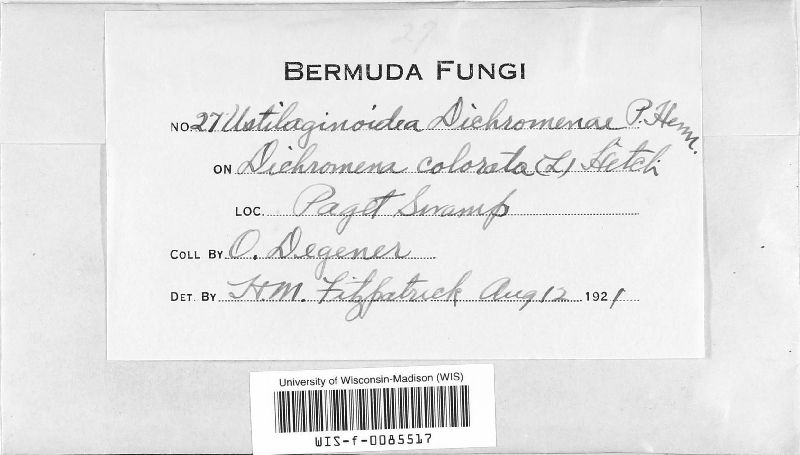 27
BERMUDA FUNGI
NO. 27 Ustilaginoidea Dichromenae P. Henn.
ON Dichromena colorata (L)
LOC. Paget Swamp
COLL BY O. Degener
DET. BY H.M. Fitzpatrick Aug 12 1921
University of Wisconsin-Madison (WIS)
WIS-f-0085517